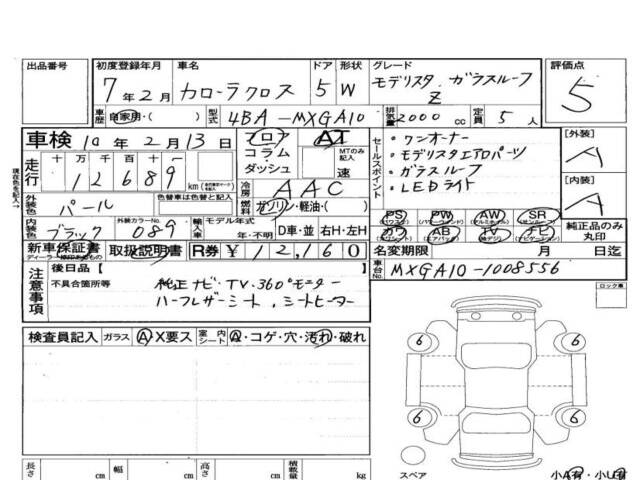 出品番号 初度登録年月 車名 ドア 形状 グレード 評価点
7年2月 カローラクロス 5 W モデリスタ ガラスルーフ Z 5
車歴 自家用・( ) 型式 4BA-MXGA10 排気量 2000cc 定員 5人
車検 10年2月13日 フロア コラム・ダッシュ AT MTのみ記入 速
走行 十万千百十一 12689 km
冷房 AAC
燃料 ガソリン・軽油・( )
セールスポイント
・ワンオーナー
・モデリスタエアロパーツ
・ガラスルーフ
・LEDライト
[外装] A
[内装] A
現在色を記入→
外装色 パール 色替車は色替前と記入
内装色 ブラック 外装カラーNo. 089 輸入車 モデル年式 年・不明 D車・並 右H・左H
PS PW AW SR
カワ AB TV ナビ
純正品のみ丸印
新車保証書 取扱説明書 R券 ¥12,160
名変期限 月 日迄
車台No. MXGA10-1008556
注意事項 後日品【 】
不具合箇所等 純正ナビ・TV・360°モニター
ハーフレザーシート、シートヒーター
ロック車
検査員記入 ガラス A・X要ス 室内シート A・コゲ・穴・汚れ・破れ
6 6
6 6
スペア
長さ cm 幅 cm 高さ cm 積載量 kg
小A有・小U有